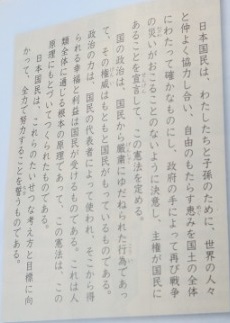 日本国民は、わたしたちと子孫のために、世界の人々
と仲よく協力し合い、自由のもたらす恵みを国土の全体
にわたって確かなものにし、政府の手によって再び戦争
の災いがおこることのないように決意し、主権が国民に
あることを宣言して、この憲法を定める。
国の政治は、国民から厳粛にゆだねられた行為であっ
て、その権威はもともと国民がもっているものである。
政治の力は、国民の代表者によって使われ、そこから得
られる幸福と利益は国民が受けるものである。これは人
類全体に通じる根本の原理であって、この憲法は、この
原理にもとづいてつくられたものである。
日本国民は、これらのたいせつな考え方と目標に向
かって、全力で努力することを誓うものである。